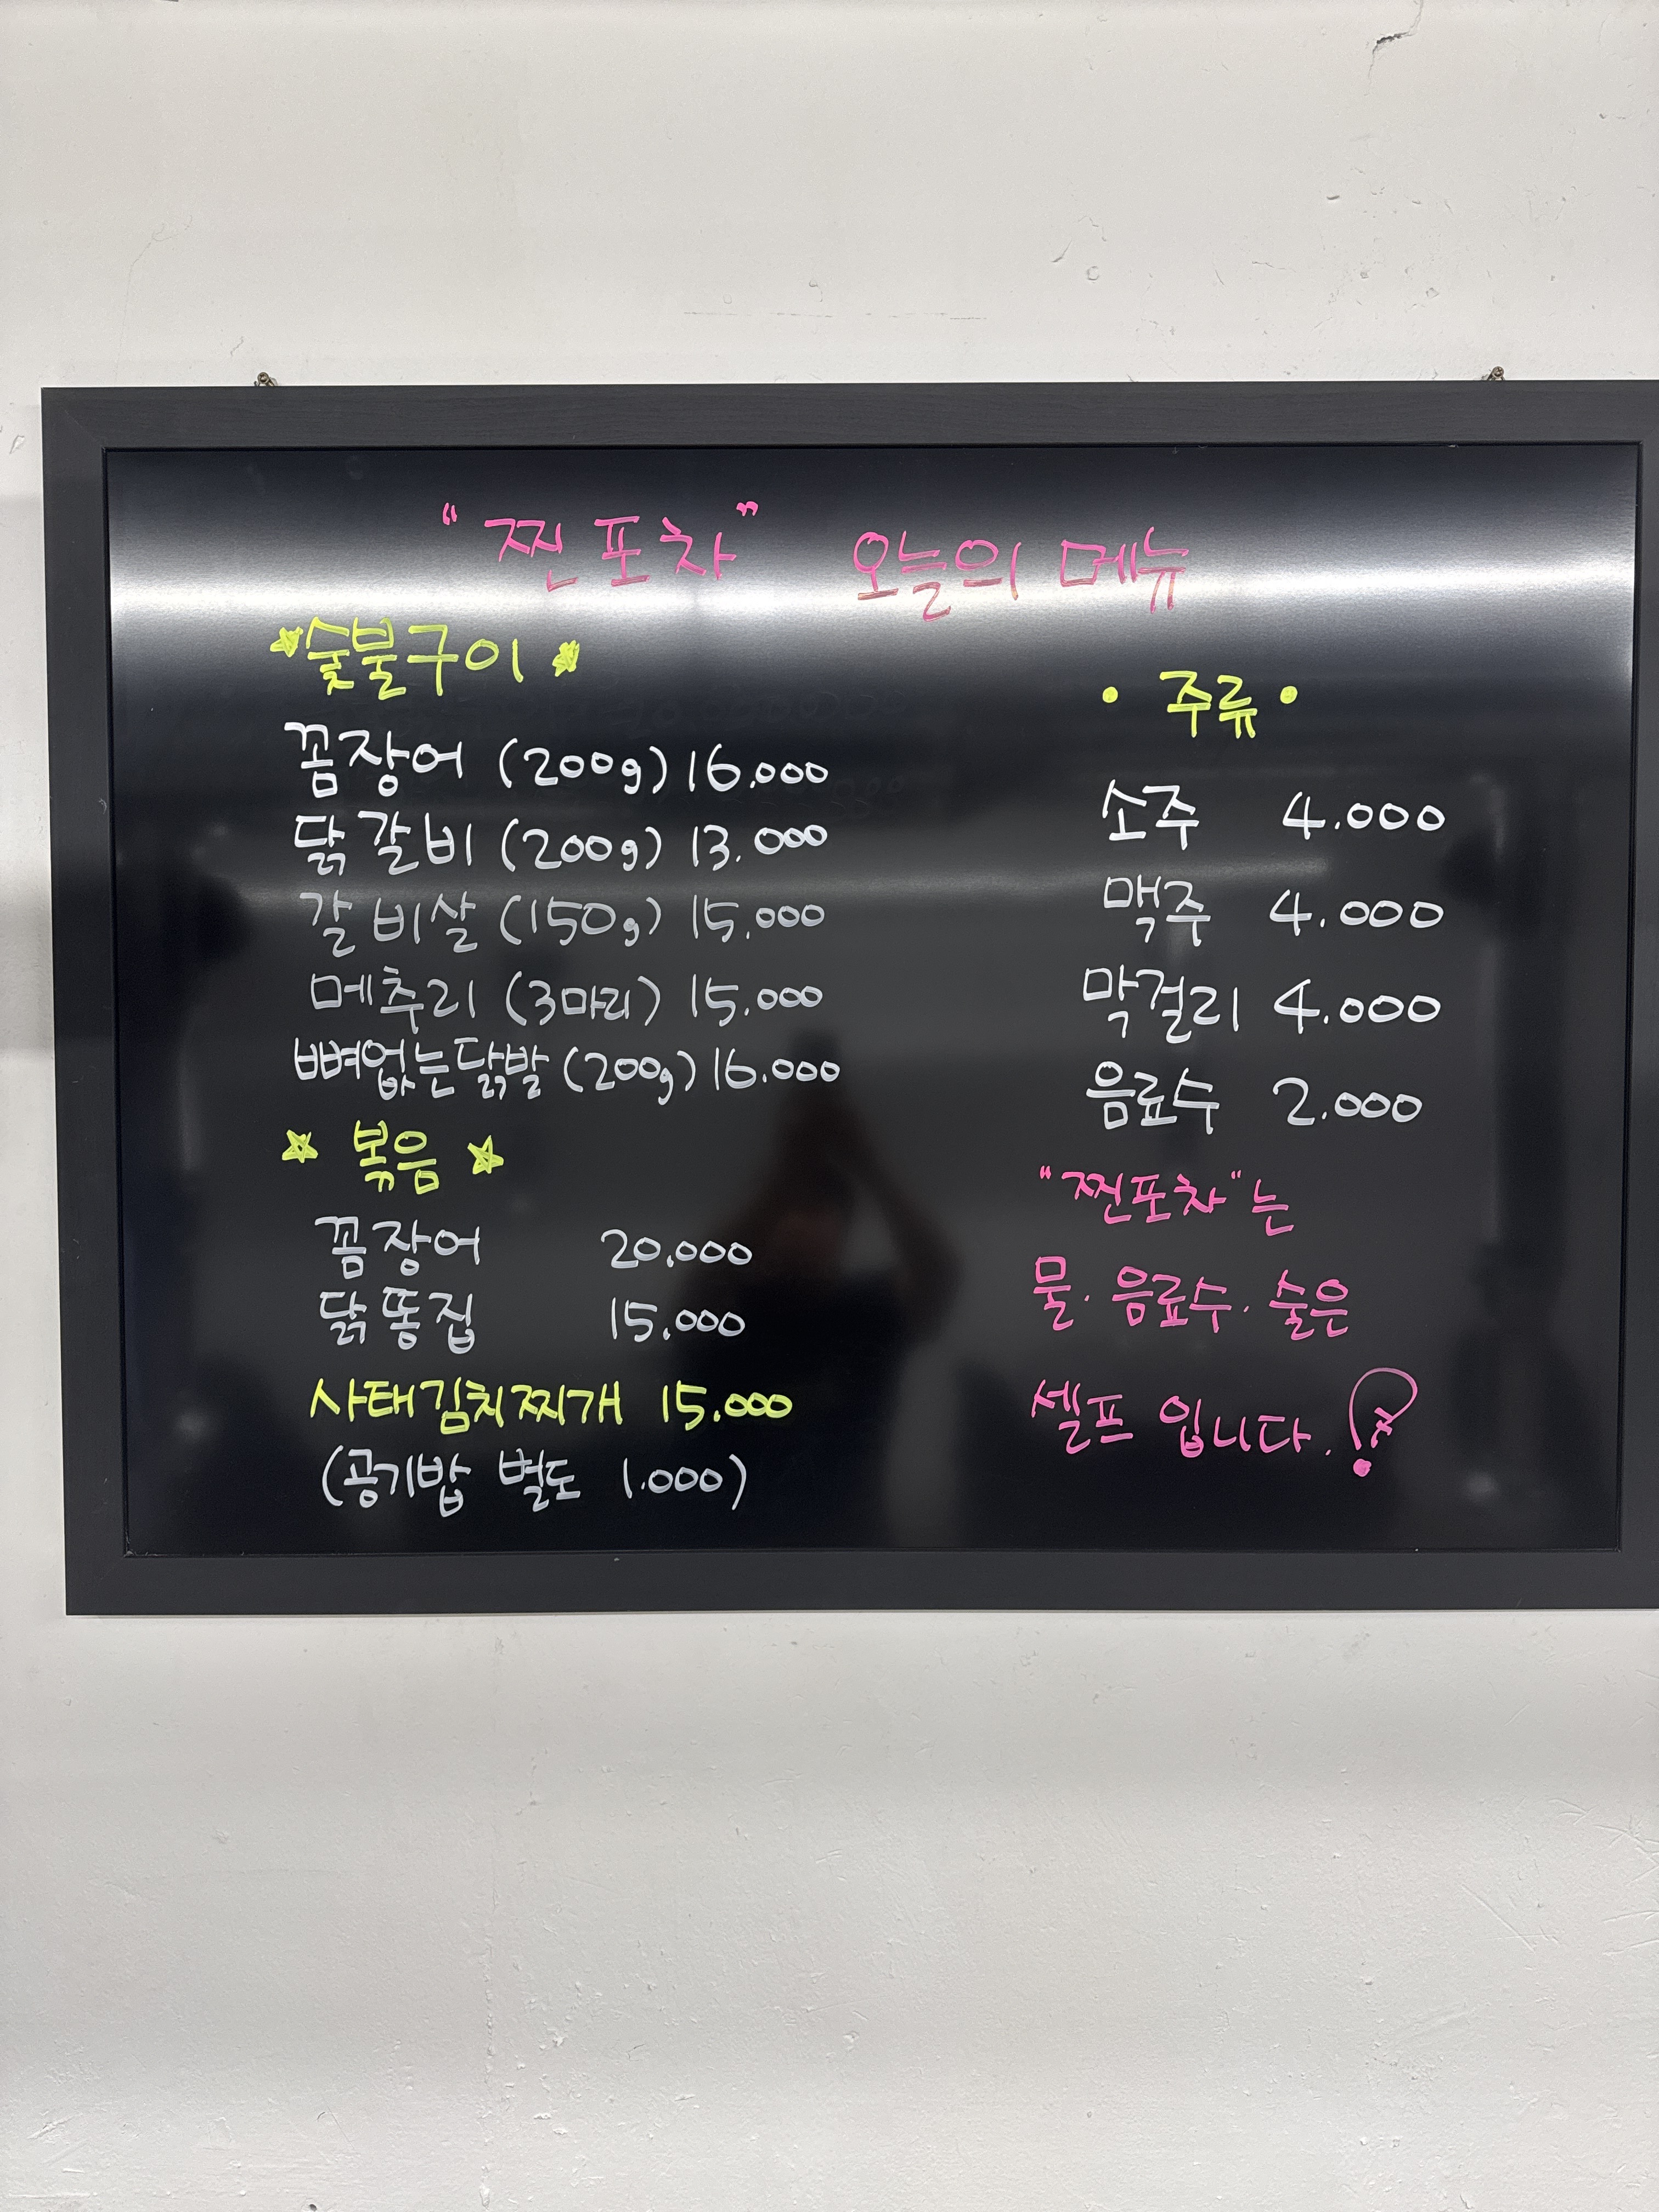 "찐포차" 오늘의 메뉴
숯불구이
꼼장어 (200g) 16.000
닭갈비 (200g) 13.000
갈비살 (150g) 15.000
메추리 (3마리) 15.000
뼈없는닭발 (200g) 16.000
볶음
꼼장어 20.000
닭똥집 15.000
사태김치찌개 15.000
(공기밥 별도 1.000)
주류
소주 4.000
맥주 4.000
막걸리 4.000
음료수 2.000
"찐포차"는
물. 음료수. 술은
셀프 입니다.